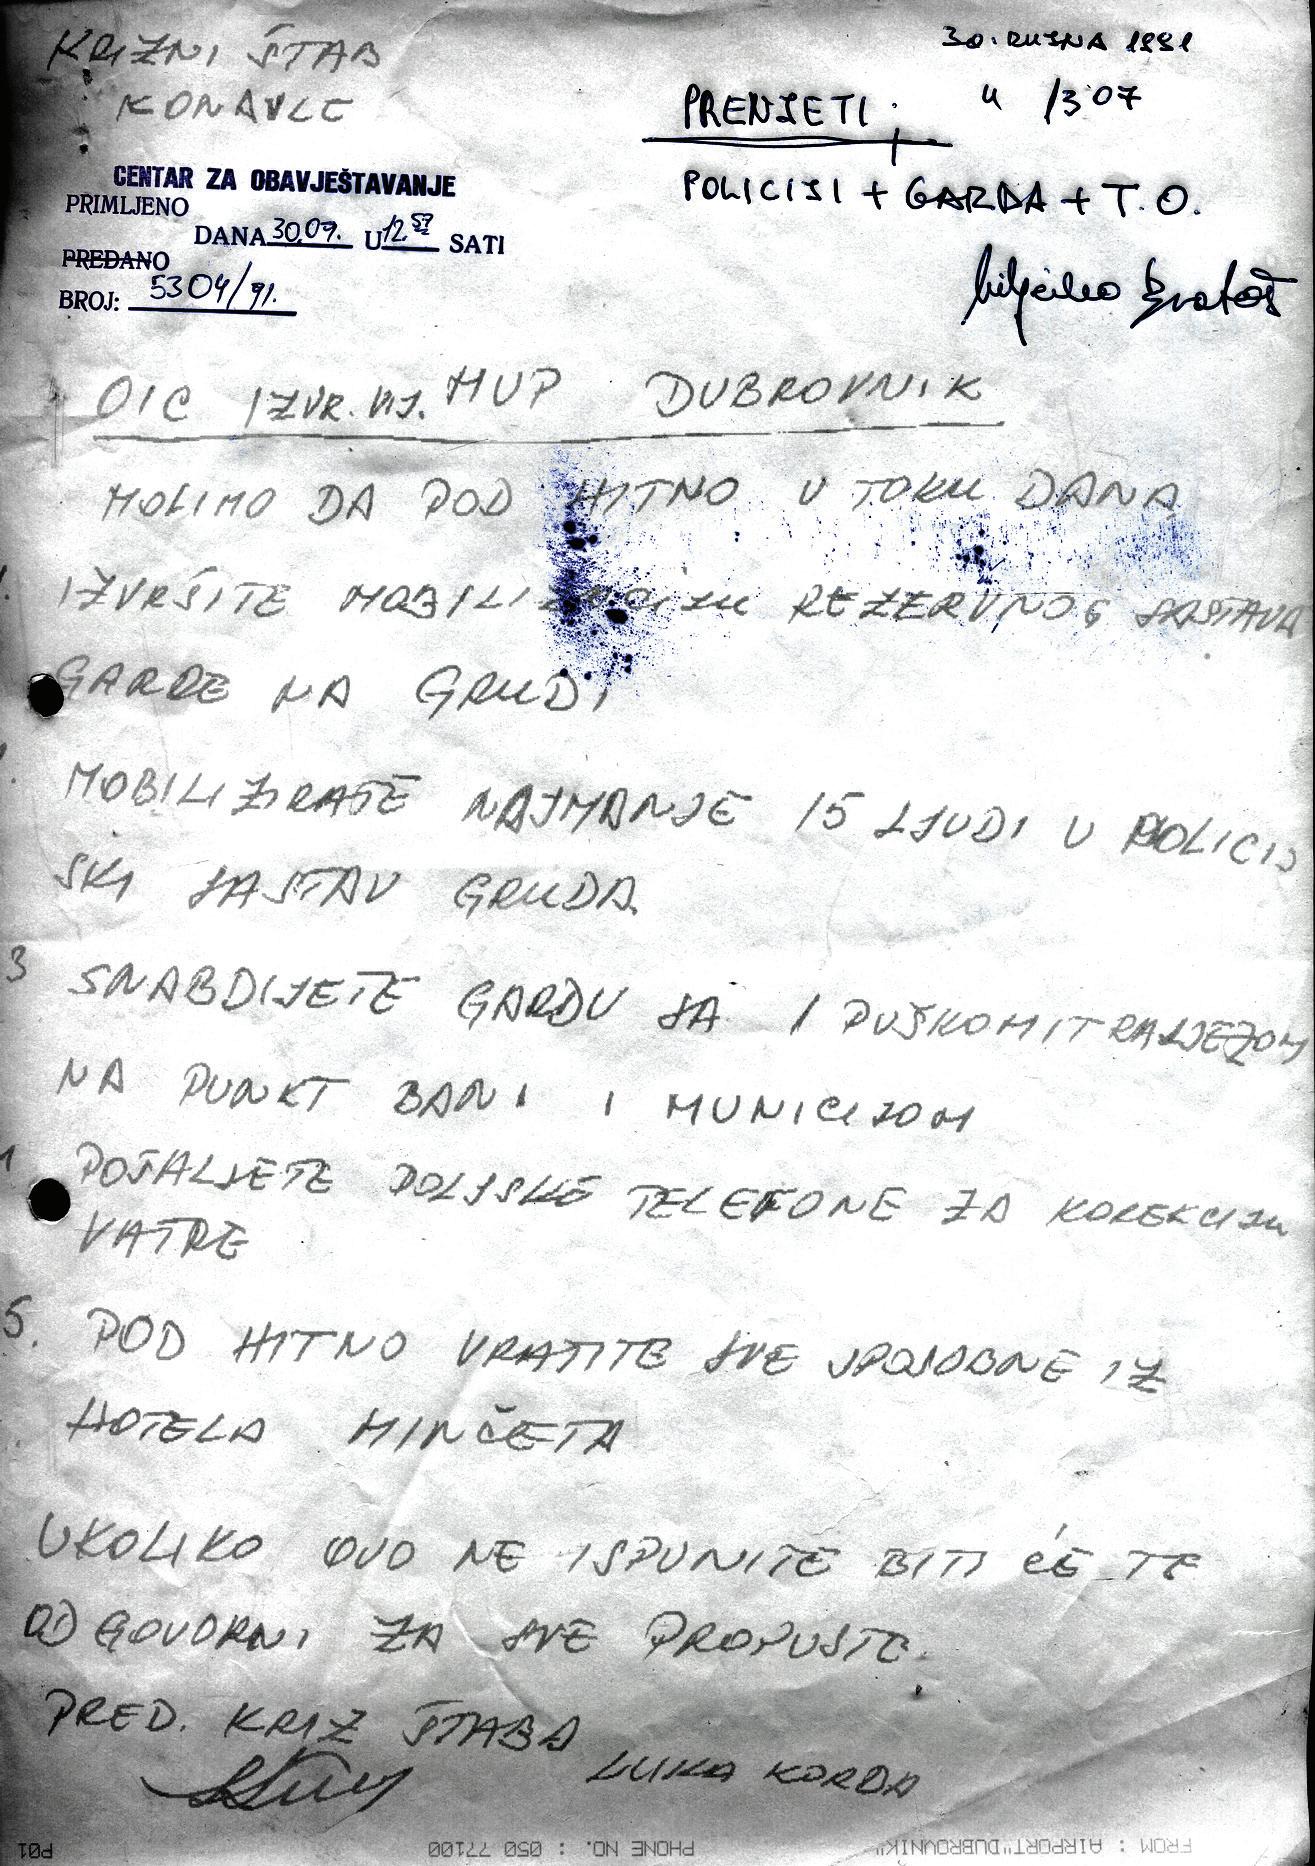 KRIZNI ŠTAB
KONAVLE
30. RUJNA 1991
PRENIJETI: u 1307
POLICIJI + GARDA + T.O.
CENTAR ZA OBAVJEŠTAVANJE
PRIMLJENO
DANA 30.09. U 12 57 SATI
PREDANO
BROJ: 5304/91.
OIC IZVR. VIJ. MUP DUBROVNIK
MOLIMO DA POD HITNO U TOKU DANA
IZVRŠITE MOBILIZACIJU REZERVNOG SASTAVA
GARDE NA GRUDI
MOBILIZIRATE NAJMANJE 15 LJUDI U POLICIJ
SKI SASTAV GRUDA
3 SNABDIJETE GARDU SA 1 PUŠKOMITRALJEZOM
NA PUNKT BANI I MUNICIJOM
POŠALJETE POLJSKE TELEFONE ZA KOREKCIJU
VATRE
5. POD HITNO VRATITE SVE SPOSOBNE IZ
HOTELA MINČETA
UKOLIKO OVO NE ISPUNITE BITI ĆE TE
ODGOVORNI ZA SVE PROPUSTE.
PRED. KRIZ ŠTABA
LUKA KORDA
FROM : AIRPORT"DUBROVNIK" PHONE NO. : 050 77100 P01